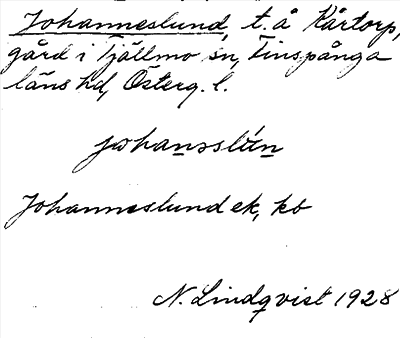 Johanneslund, t. å Kårtorp,
gård i Tjällmo sn, Finspånga
läns hd, Österg. l.
johansslún
Johanneslund ek, kb
N. Lindqvist 1928